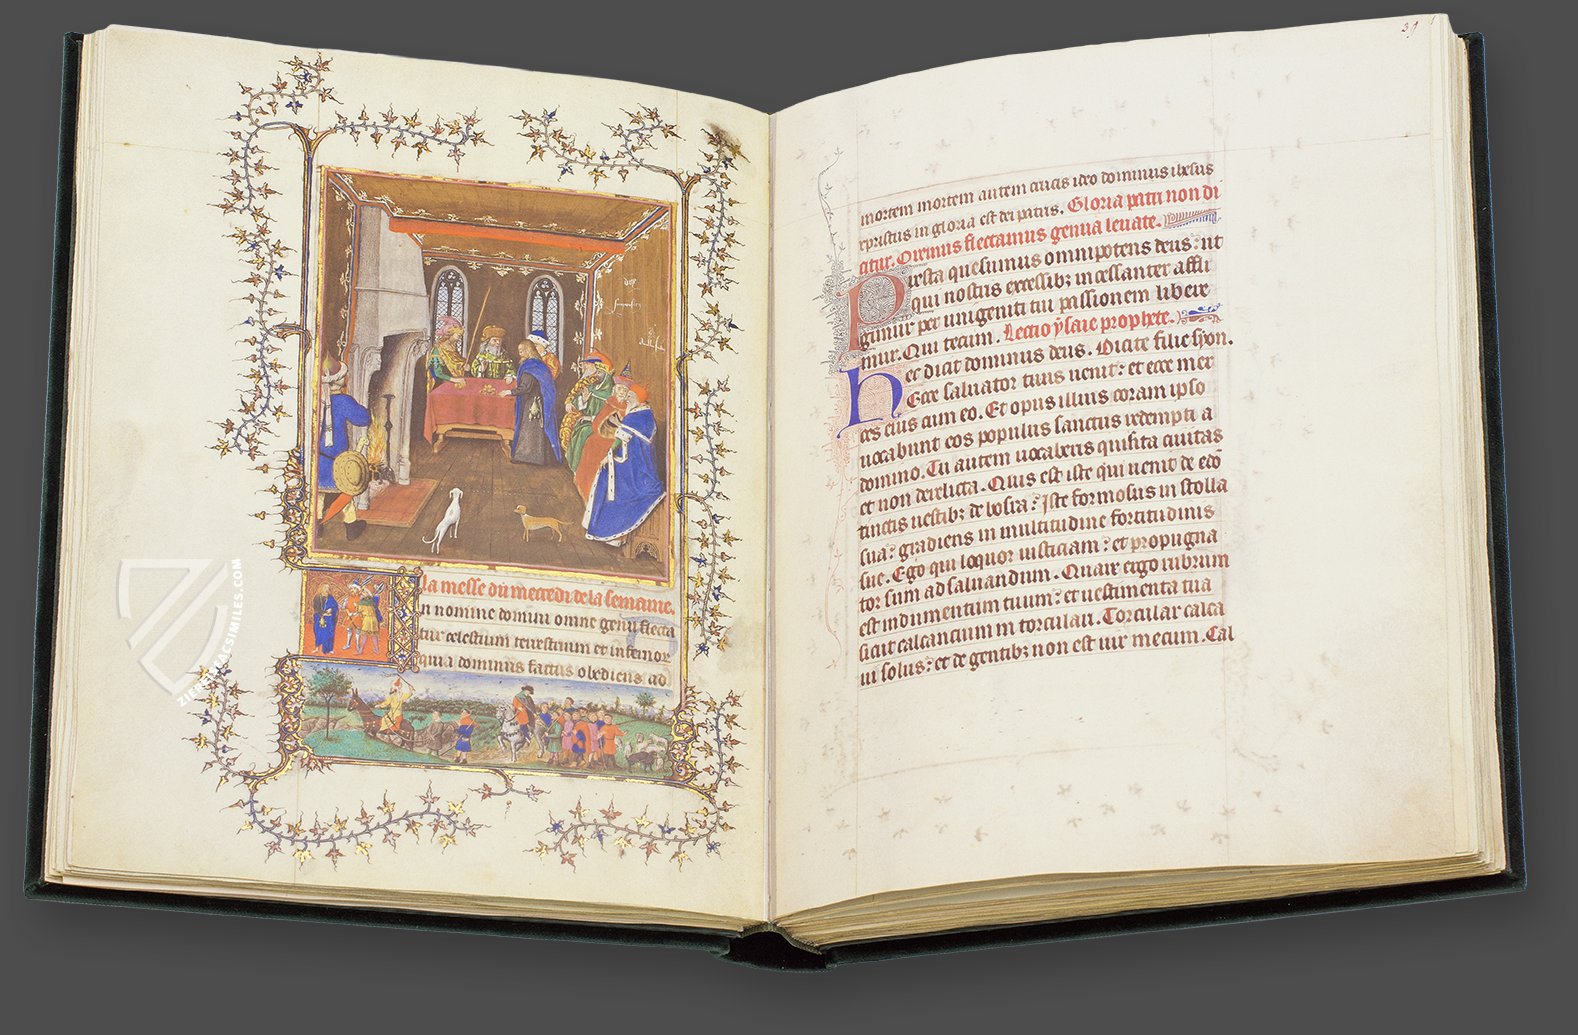 La messe du mecredi de la semaine.
In nomine domini omne genu flecta
tur celestium terrestrium et infernor
quia dominus factus obediens ad
ZIEREIS FACSIMILES.COM
39
mortem mortem autem crucis ideo dominus ihesus
xpristus in gloria est dei patris. Gloria patri non di
citur. Oremus flectamus genua levate.
Presta quesumus omnipotens deus: ut
qui nostris excessibz incessanter affli
gimur per unigeniti tui passionem libere
mur. Qui tecum. Lectio ysaie prophete.
Hec dicit dominus deus. Dicite filie syon.
Ecce salvator tuus venit: et ecce mer
ces eius cum eo. Et opus illius coram ipso
vocabunt eos populus sanctus redempti a
domino. Tu autem vocaberis quisita civitas
et non derelicta. Quis est iste qui venit de edom
tinctis vestibz de bosra? Iste formosus in stolla
sua: gradiens in multitudine fortitudinis
sue. Ego qui loquor iusticiam: et propugna
tor sum ad salvandum. Quare ergo rubrum
est indumentum tuum: et vestimenta tua
sicut calcantium in torculari. Torcular calca
vi solus: et de gentibz non est vir mecum. Cal